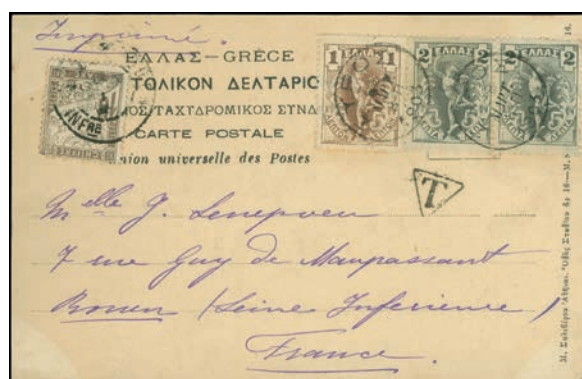 Imprimé.
ΕΛΛΑΣ–GRÈCE
ΤΟΛΙΚΟΝ ΔΕΛΤΑΡΙΟ
ΟΣ ΤΑΧΥΔΡΟΜΙΚΟΣ ΣΥΝΔ
CARTE POSTALE
nion universelle des Postes
1 ΕΛΛΑΣ 1
2 ΕΛΛΑΣ 2
2 ΕΛΛΑΣ 2
INFRE
T
Melle J. Senepveu
7 rue Guy de Maupassant
Rouen (Seine Inferieure)
France.